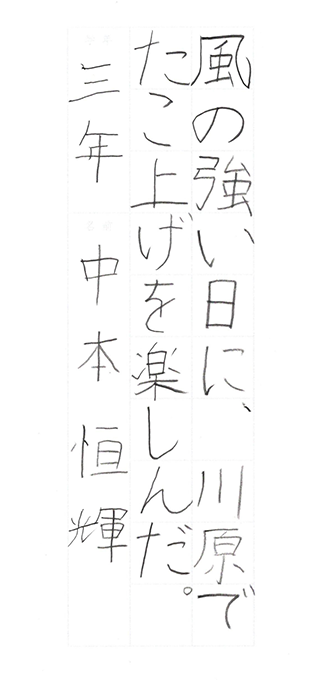 風の強い日に、川原で
たこ上げを楽しんだ。
三年 中本恒輝